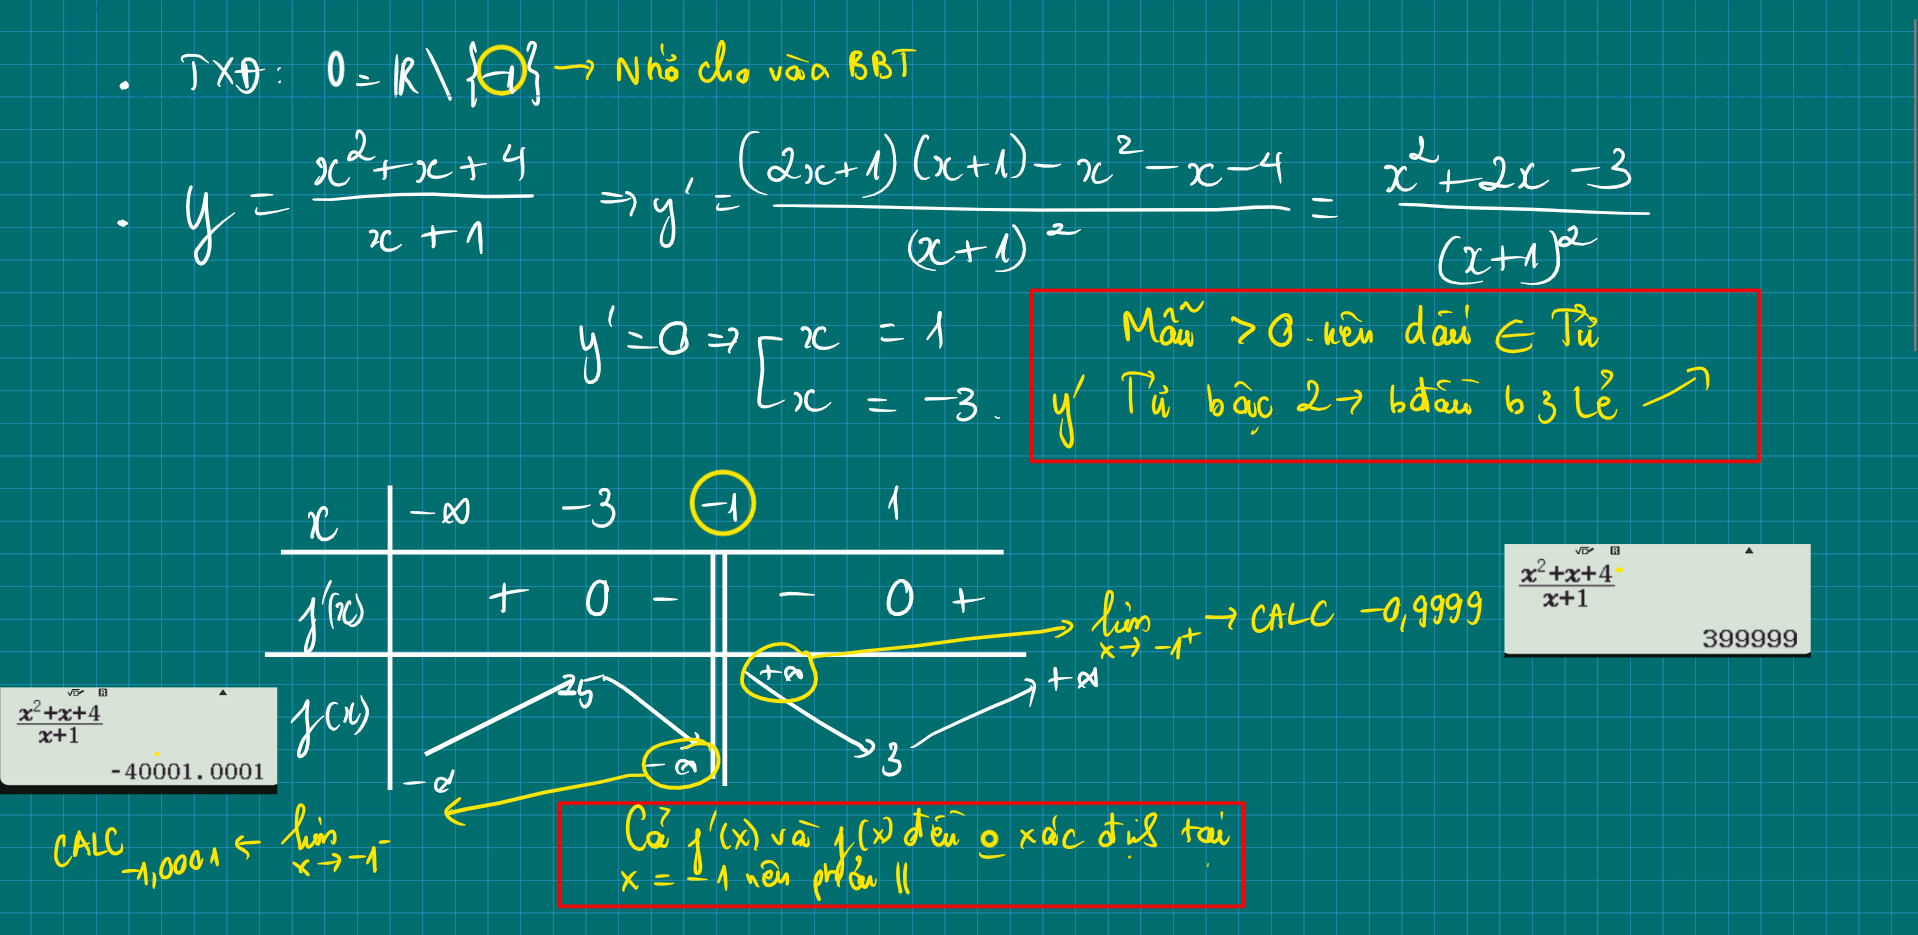 . TXĐ: D = ℝ \ {-1} → Nhớ cho vào BBT
. y = (x² + x + 4)/(x + 1) ⇒ y' = ((2x+1)(x+1) - x² - x - 4)/(x+1)² = (x² + 2x - 3)/(x+1)²
y' = 0 ⇒ [ x = 1
x = -3.
Mẫu > 0 nên dấu ∈ Tử
y' Tử bậc 2 → bđầu b 3 lẻ ↗
x -∞ -3 -1 1
f'(x) + 0 - || - 0 +
lim x→-1⁺ → CALC -0,9999
x²+x+4
x+1
399999
f(x) -∞ -5 -∞ || +∞ 3 +∞
x²+x+4
x+1
-40001.0001
CALC -1,0001 ← lim x→-1⁻
Cả f'(x) và f(x) đều o xác định tại
x = -1 nên phải ||